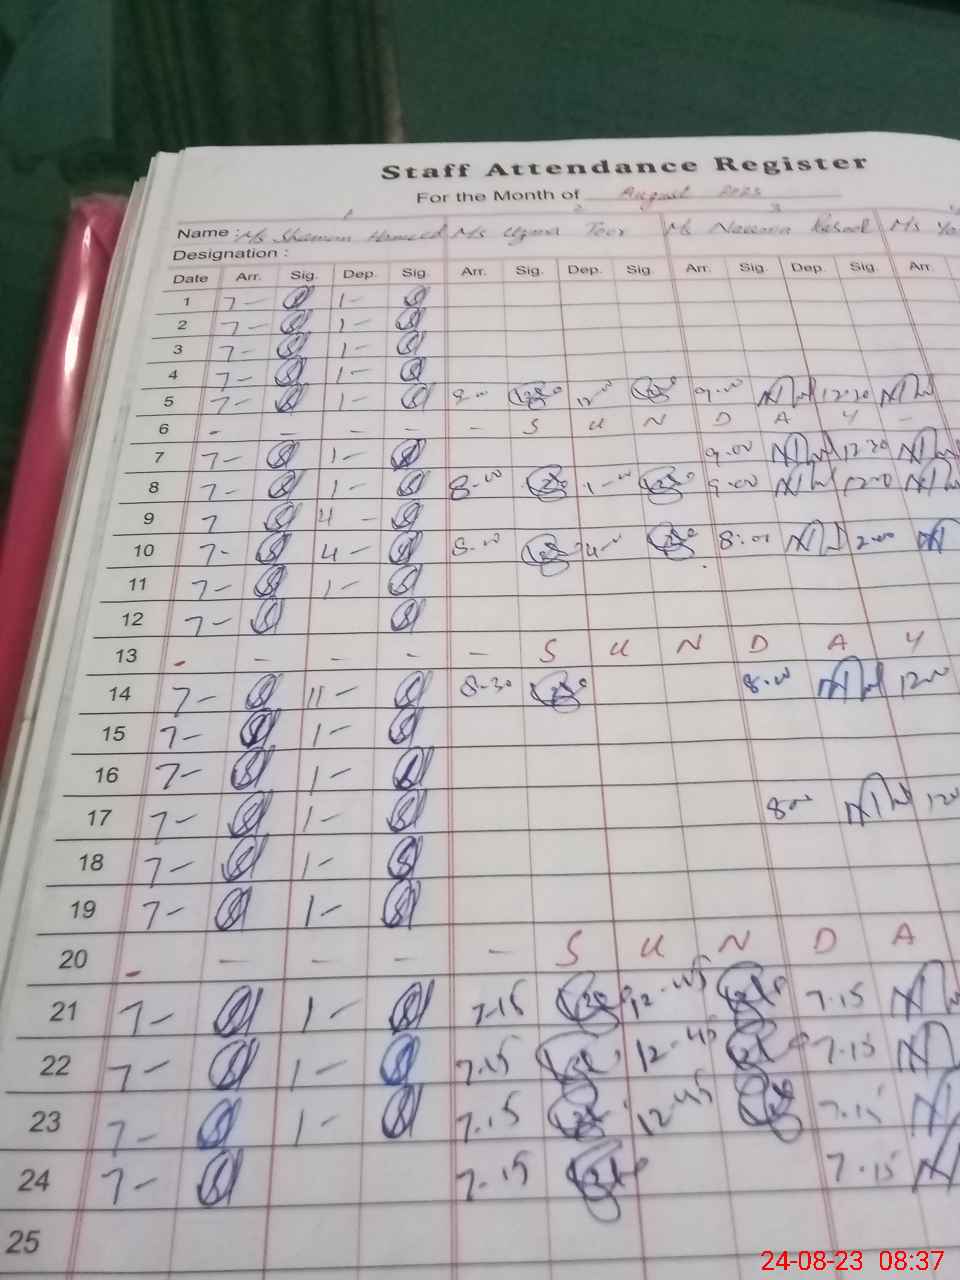 Staff Attendance Register
For the Month of August 2023
1 2 3
Name : Ms Hameed Ms Uzma Toor Ms Rasool Ms
Designation :
Date Arr. Sig. Dep. Sig. Arr. Sig. Dep. Sig. Arr. Sig. Dep. Sig. Arr.
1 7- 1-
2 7- 1-
3 7- 1-
4 7- 1-
5 7- 1- 9.00 12.30
6 - - - - - S U N D A Y -
7 7- 1- 9.00 12.30
8 7- 1- 8.00 1-00 9.00
9 7 4 -
10 7- 4- 8.00 4-00 8:00 2.00
11 7- 1-
12 7-
13 - - - - - S U N D A Y
14 7- 11- 8-30 8.00 1200
15 7- 1-
16 7- 1-
17 7- 1- 800
18 7- 1-
19 7- 1-
20 - - - - - S U N D A
21 7- 1- 7.15 12-45 7.15
22 7- 1- 7.15 12-45 7.15
23 7- 1- 7.15 12-45 7.15
24 7- 7-15 7-15
25
24-08-23 08:37